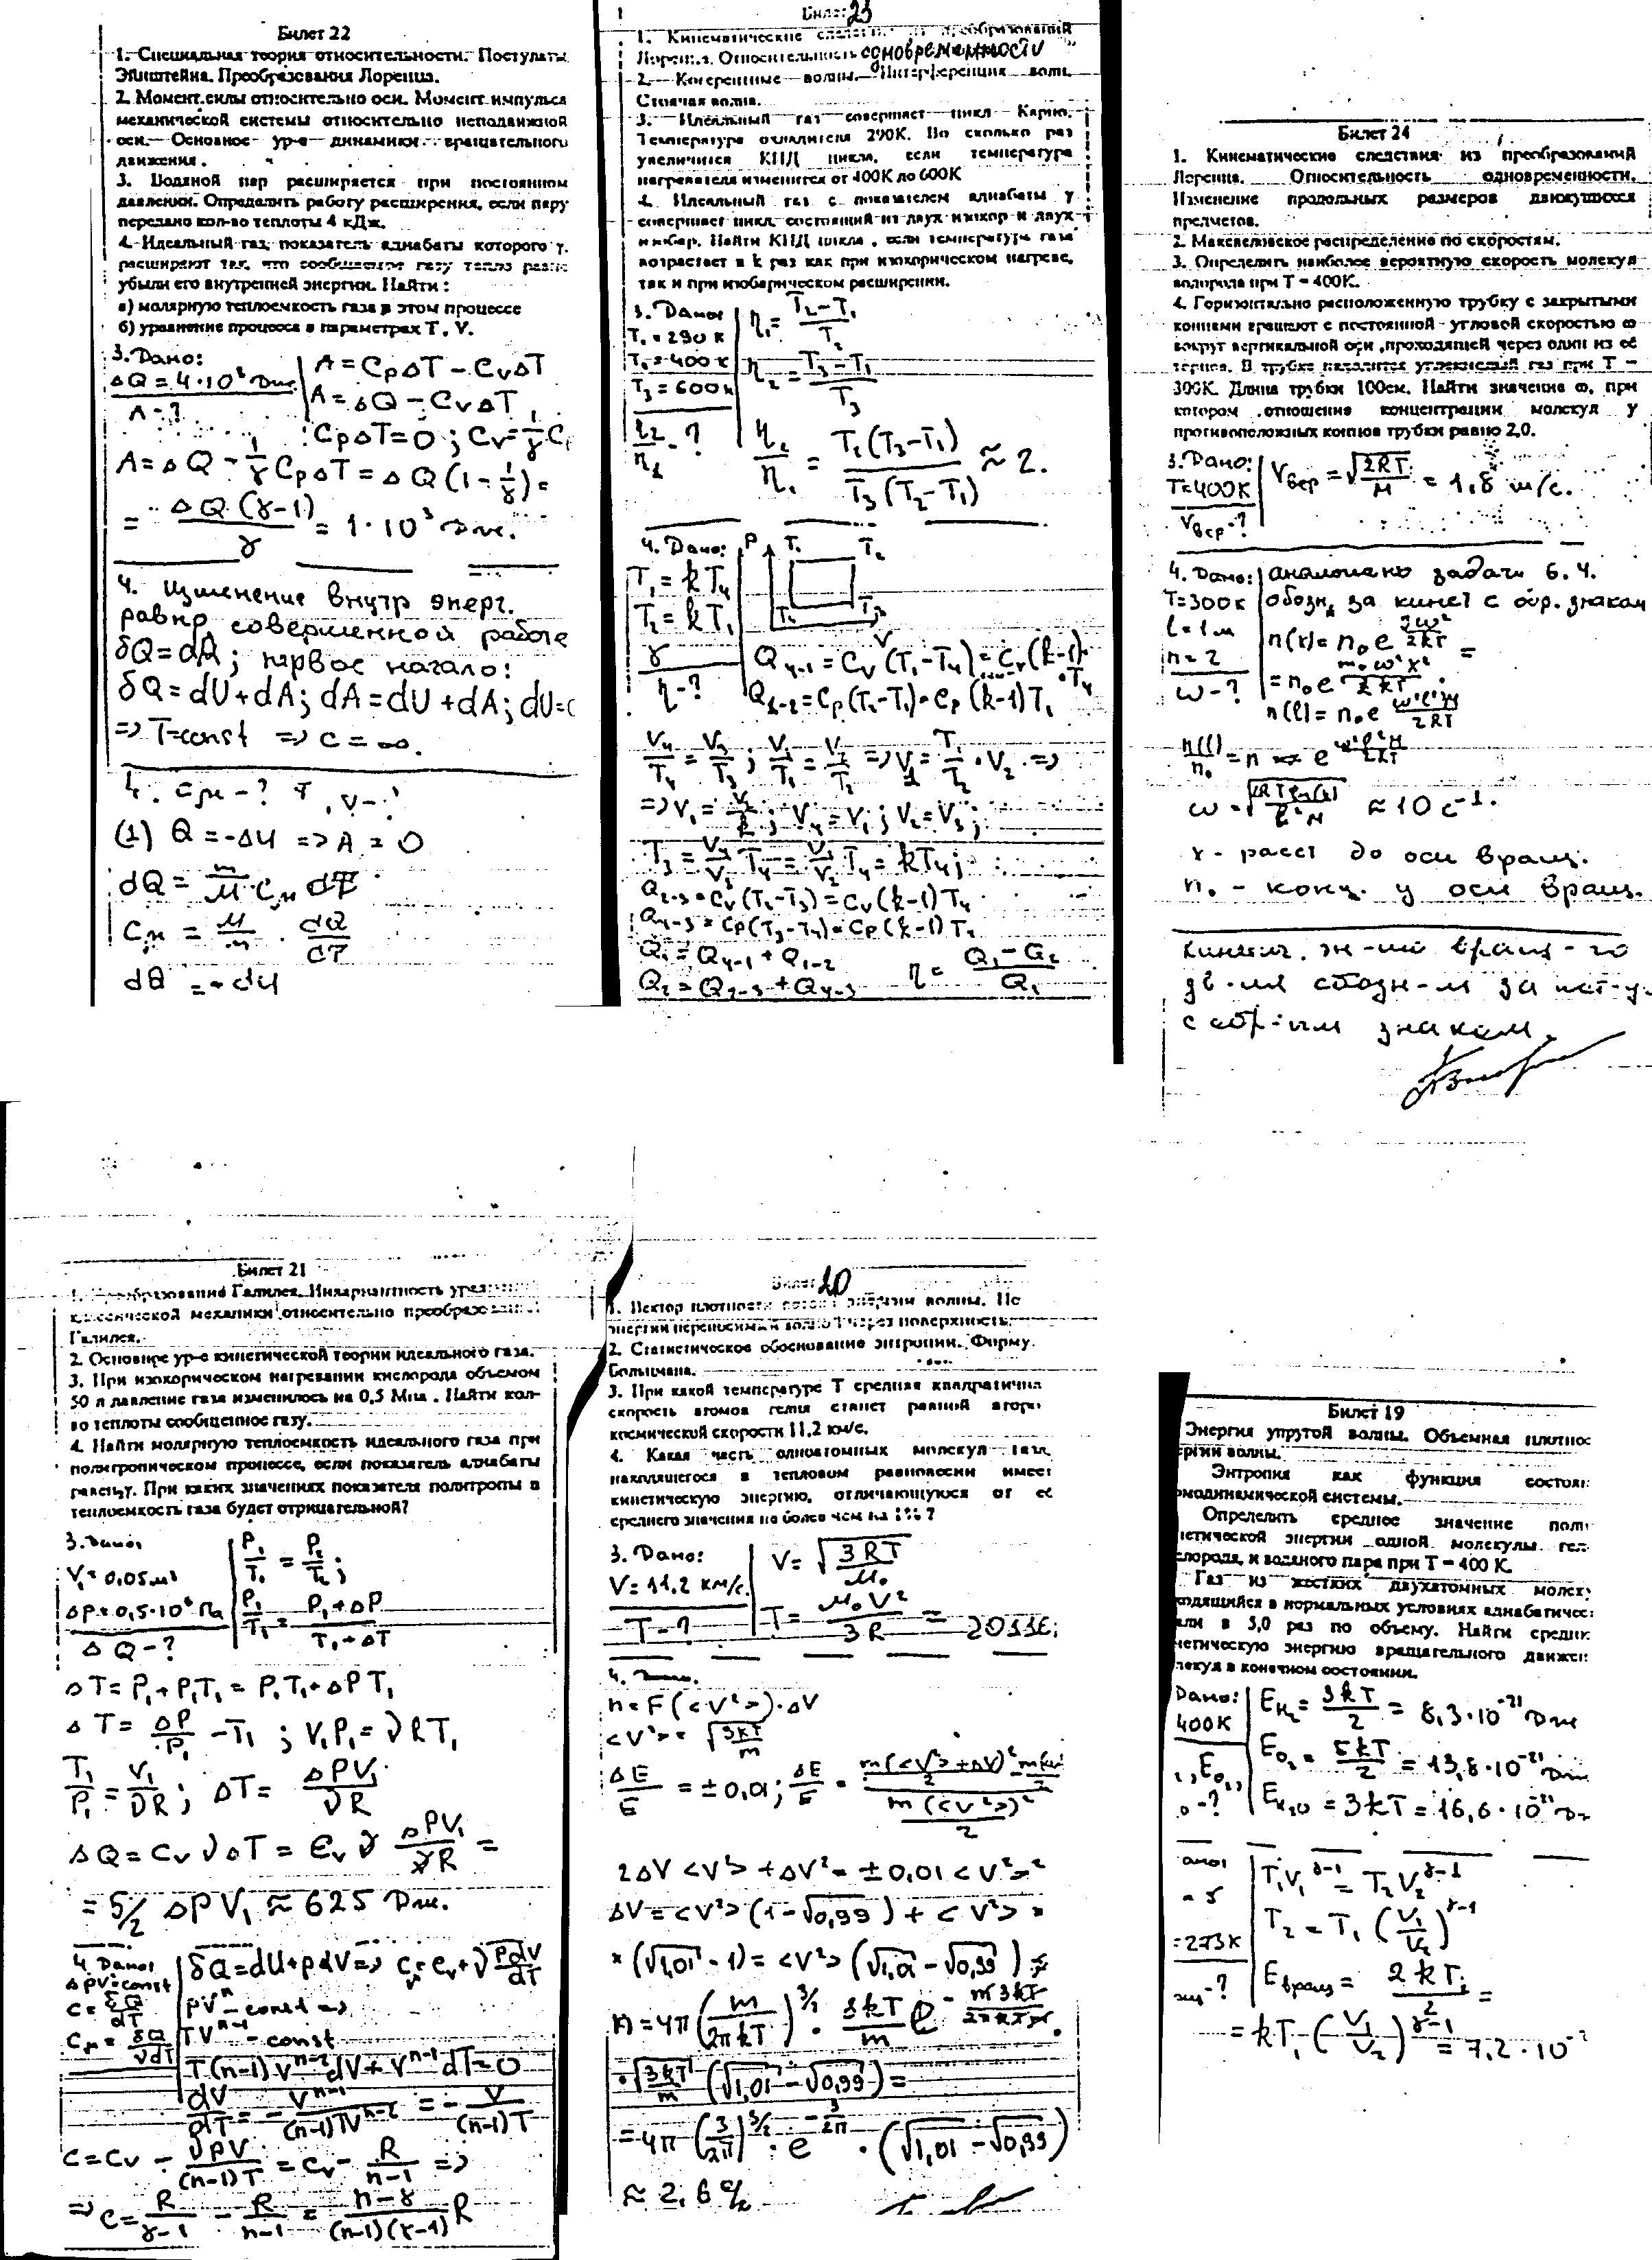 Билет 22
1. Специальная теория относительности. Постулаты
Эйнштейна. Преобразования Лоренца.
2. Момент силы относительно оси. Момент импульса
механической системы относительно неподвижной
оси. Основное ур-е динамики вращательного
движения.
3. Водяной пар расширяется при постоянном
давлении. Определить работу расширения, если пару
передано кол-во теплоты 4 кДж.
4. Идеальный газ, показатель адиабаты которого γ,
расширяют так, что сообщаемое газу тепло равно
убыли его внутренней энергии. Найти :
а) молярную теплоемкость газа в этом процессе
б) уравнение процесса в параметрах T, V.
3. Дано:
ΔQ = 4·10³ Дж
A - ?
A = CpΔT - CvΔT
A = ΔQ - CvΔT
CpΔT = 0 ; Cv = 1/γ C
A = ΔQ - 1/γ CpΔT = ΔQ (1 - 1/γ) =
= ΔQ (γ-1)/γ = 1·10³ Дж.
4. Изменение внутр энерг.
равно совершенной работе
δQ = dA; первое начало:
δQ = dU + dA; dA = dU + dA; dU =
=> T=const => c = ∞.
4. Cм - ? T, V - ?
(1) Q = -ΔU => A = 0
dQ = m/M Cм dT
Cм = M/m · dQ/dT
dQ = - dU
Билет 23
1. Кинематические преобразований
Относительность одновременности
2. Когерентные волны. Интерференция волн.
Стоячая волна.
3. Идеальный газ совершает цикл Карно.
Температура охладителя 290К. Во сколько раз
увеличится КПД цикла, если температура
нагревателя изменится от 400К до 600К
4. Идеальный газ с показателем адиабаты γ
совершает цикл, состоящий из двух изохор и двух
изобар. Найти КПД цикла , если температура газа
возрастает в k раз как при изохорическом нагреве,
так и при изобарическом расширении.
3. Дано:
T₁ = 290 К
T₂ = 400 К
T₃ = 600 К
η₂/η₁ - ?
η₁ = (T₂-T₁)/T₂
η₂ = (T₃-T₁)/T₃
η₂/η₁ = T₂(T₃-T₁)/T₃(T₂-T₁) ≈ 2.
4. Дано:
T₁ = kT₄
T₂ = kT₁
γ
η - ?
P T₁ T₂
T₃
V
Q₄₋₁ = Cv (T₁-T₄) = Cv (k-1)·T₄
Q₁₋₂ = Cp (T₂-T₁) = Cp (k-1) T₁
V₄/T₄ = V₃/T₃ ; V₁/T₁ = V₂/T₂ => V₁ = T₁/T₂ · V₂ =>
=> V₁ = V₂/k ; V₄ = V₁ ; V₂ = V₃ ;
T₃ = V₃/V₄ T₄ = V₂/V₁ T₄ = kT₄ ;
Q₂₋₃ = Cv (T₂-T₃) = Cv (k-1) T₄
Q₄₋₃ = Cp (T₃-T₄) = Cp (k-1) T₄
Q₁ = Q₄₋₁ + Q₁₋₂
Q₂ = Q₂₋₃ + Q₄₋₃
η = (Q₁ - Q₂)/Q₁
Билет 24
1. Кинематические следствия из преобразований
Лоренца. Относительность одновременности.
Изменение продольных размеров движущихся
предметов.
2. Максвелловское распределение по скоростям.
3. Определить наиболее вероятную скорость молекул
водорода при T = 400К.
4. Горизонтально расположенную трубку с закрытыми
концами вращают с постоянной угловой скоростью ω
вокруг вертикальной оси ,проходящей через один из её
торцов. В трубке находится углекислый газ при T =
300К. Длина трубки 100см. Найти значение ω, при
котором отношение концентрации молекул у
противоположных концов трубки равно 2,0.
3. Дано:
T=400К
Vвер - ?
Vвер = √(2RT/M) = 1,8 м/с.
4. Дано:
T=300К
l = 1 м
n = 2
ω - ?
аналогично задачи 6.4.
обозн, за кинет с обр. знаком
n(r) = n₀ e^(Jω²/2kT) =
= n₀ e^(m₀ω²x²/2kT)
n(l) = n₀ e^(ω²l²M/2RT)
n(l)/n₀ = n = e^(ω²l²M/2RT)
ω = √(2RT ln(n)/l²M) ≈ 10 с⁻¹.
r - расст до оси вращ.
n₀ - конц. у оси вращ.
кинетич. эн-ию вращ-го
дв-ия обозн-м за пот-ую
с обр-ым знаком.
Билет 21
1. Преобразования Галилея. Инвариантность
классической механики относительно преобразований
Галилея.
2. Основное ур-е кинетической теории идеального газа.
3. При изохорическом нагревании кислорода объемом
50 л давление газа изменилось на 0,5 Мпа . Найти кол-
во теплоты сообщенное газу.
4. Найти молярную теплоемкость идеального газа при
политропическом процессе, если показатель адиабаты
равен γ. При каких значениях показателя политропы n
теплоемкость газа будет отрицательной?
3. Дано:
V₁ = 0,05 м³
ΔP = 0,5·10⁶ Па
ΔQ - ?
P₁/T₁ = P₂/T₂ ;
P₁/T₁ = (P₁+ΔP)/(T₁+ΔT)
ΔT = P₁ + P₁T₁ = P₁T₁ + ΔPT₁
ΔT = ΔP/P₁ - T₁ ; V₁P₁ = νRT₁
T₁/P₁ = V₁/νR ; ΔT = ΔPV₁/νR
ΔQ = CvνΔT = Cv ν ΔPV₁/νR =
= 5/2 ΔPV₁ ≈ 625 Дж.
4. Дано:
ΔPVⁿ=const
C = δQ/dT
Cм = δQ/νdT
δQ = dU + pdV => C = Cv + √ pdV/dT
PVⁿ - const =>
TVⁿ⁻¹ - const
T(n-1)Vⁿ⁻² dV + Vⁿ⁻¹ dT = 0
dV/dT = - Vⁿ⁻¹/(n-1)TVⁿ⁻² = - V/(n-1)T
C = Cv - νPV/(n-1)T = Cv - R/(n-1) =>
=> C = R/(γ-1) - R/(n-1) = (n-γ)/(n-1)(γ-1) R
Билет 20
1. Вектор плотности потока энергии волны.
энергии переносимая волной через поверхность.
2. Статистическое обоснование энтропии. Форму
Больцмана.
3. При какой температуре T средняя квадратична
скорость атомов гелия станет равной второй
космической скорости 11,2 км/с.
4. Какая часть одноатомных молекул газа,
находящегося в тепловом равновесии имеет
кинетическую энергию, отличающуюся от её
среднего значения не более чем на 1% ?
3. Дано:
V = 11,2 км/с.
T - ?
V = √(3RT/M₀)
T = M₀V²/3R = 2011К;
4.
n = F(<V²>)·ΔV
<V²> = √(3kT/m)
ΔE/E = ±0,01; ΔE/E =
2ΔV<V²> + ΔV² = ±0,01 <V²>²
ΔV = <V²> (1-√0,99) + <V²> ×
× (√1,01 - 1) = <V²> (√1,01 - √0,99)
n = 4π (m/2πkT)^3/2 · 3kT/m e
· √(3kT/m) (√1,01 - √0,99) =
= 4π (3/2π)^3/2 · e^(-3/2π) · (√1,01 - √0,99)
≈ 2,6 %
Билет 19
Энергия упругой волны. Объемная плотнос
ергии волны.
Энтропия как функция состоя
рмодинамической системы.
Определить среднее значение пол
нетической энергии одной молекулы гел
слорода, и водяного пара при T = 400 К.
Газ из жестких двухатомных молек
ходящийся в нормальных условиях адиабатичес
али в 5,0 раз по объему. Найти средн
нетическую энергию вращательного движе
лекул в конечном состоянии.
Дано:
400К
Eк₂ = 3kT/2 = 8,3·10⁻²¹ Дж
E₀₂ = 5kT/2 = 13,8·10⁻²¹ Дж
Eн₂₀ = 3kT = 16,6·10⁻²¹ Дж
= 5
= 273К
T₁V₁^(γ-1) = T₂V₂^(γ-1)
T₂ = T₁ (V₁/V₂)^(γ-1)
Eвращ = 2kT₂/2 =
= kT₁ (V₁/V₂)^(γ-1) = 7,2·10